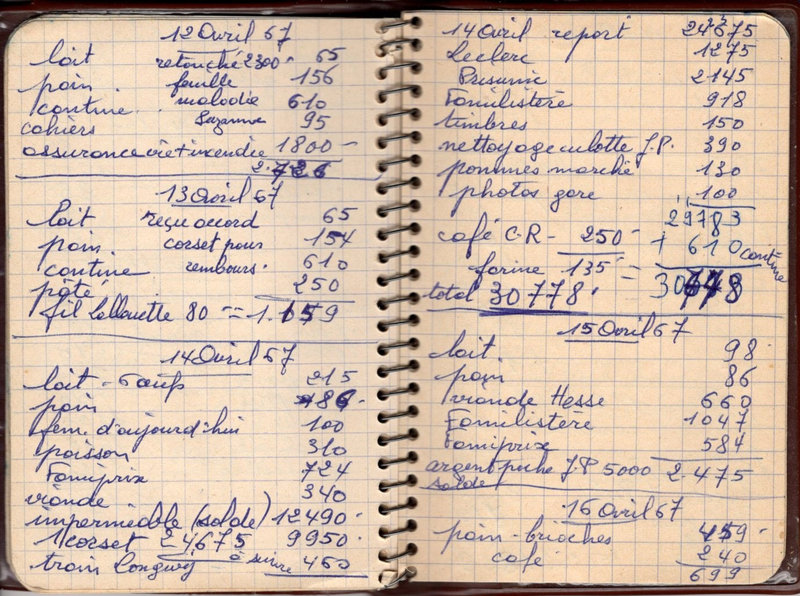 12 Avril 67
lait retouché 2300 65
pain feuille 156
cantine maladie 610
cahiers Suzanne 95
assurance vie + incendie 1800 -
2.726
13 Avril 67
lait reçu accord 65
pain corset pour 154
cantine rembours. 610
pâté 250
fil Lallouette 80 = 1.159
14 Avril 67
lait - 6 oeufs 215
pain 86
fem. d'aujourd'hui 100
poisson 310
Familprix 724
viande 340
imperméable (solde) 12490
1 corset 24675 9950
train Longwy à suivre 460
14 Avril report 24675
Leclerc 1275
Prisunic 2145
Familistère 918
timbres 150
nettoyage culotte J.P. 390
pommes marché 130
photos gare 100
29783
café C-R - 250 + 610 cantine
farine 135 =
total 30778
15 Avril 67
lait 98
pain 86
viande Hesse 660
Familistère 1047
Familprix 584
argent poche J.P 5000 2.475
solde
16 Avril 67
pain - brioches 459
café 240
699